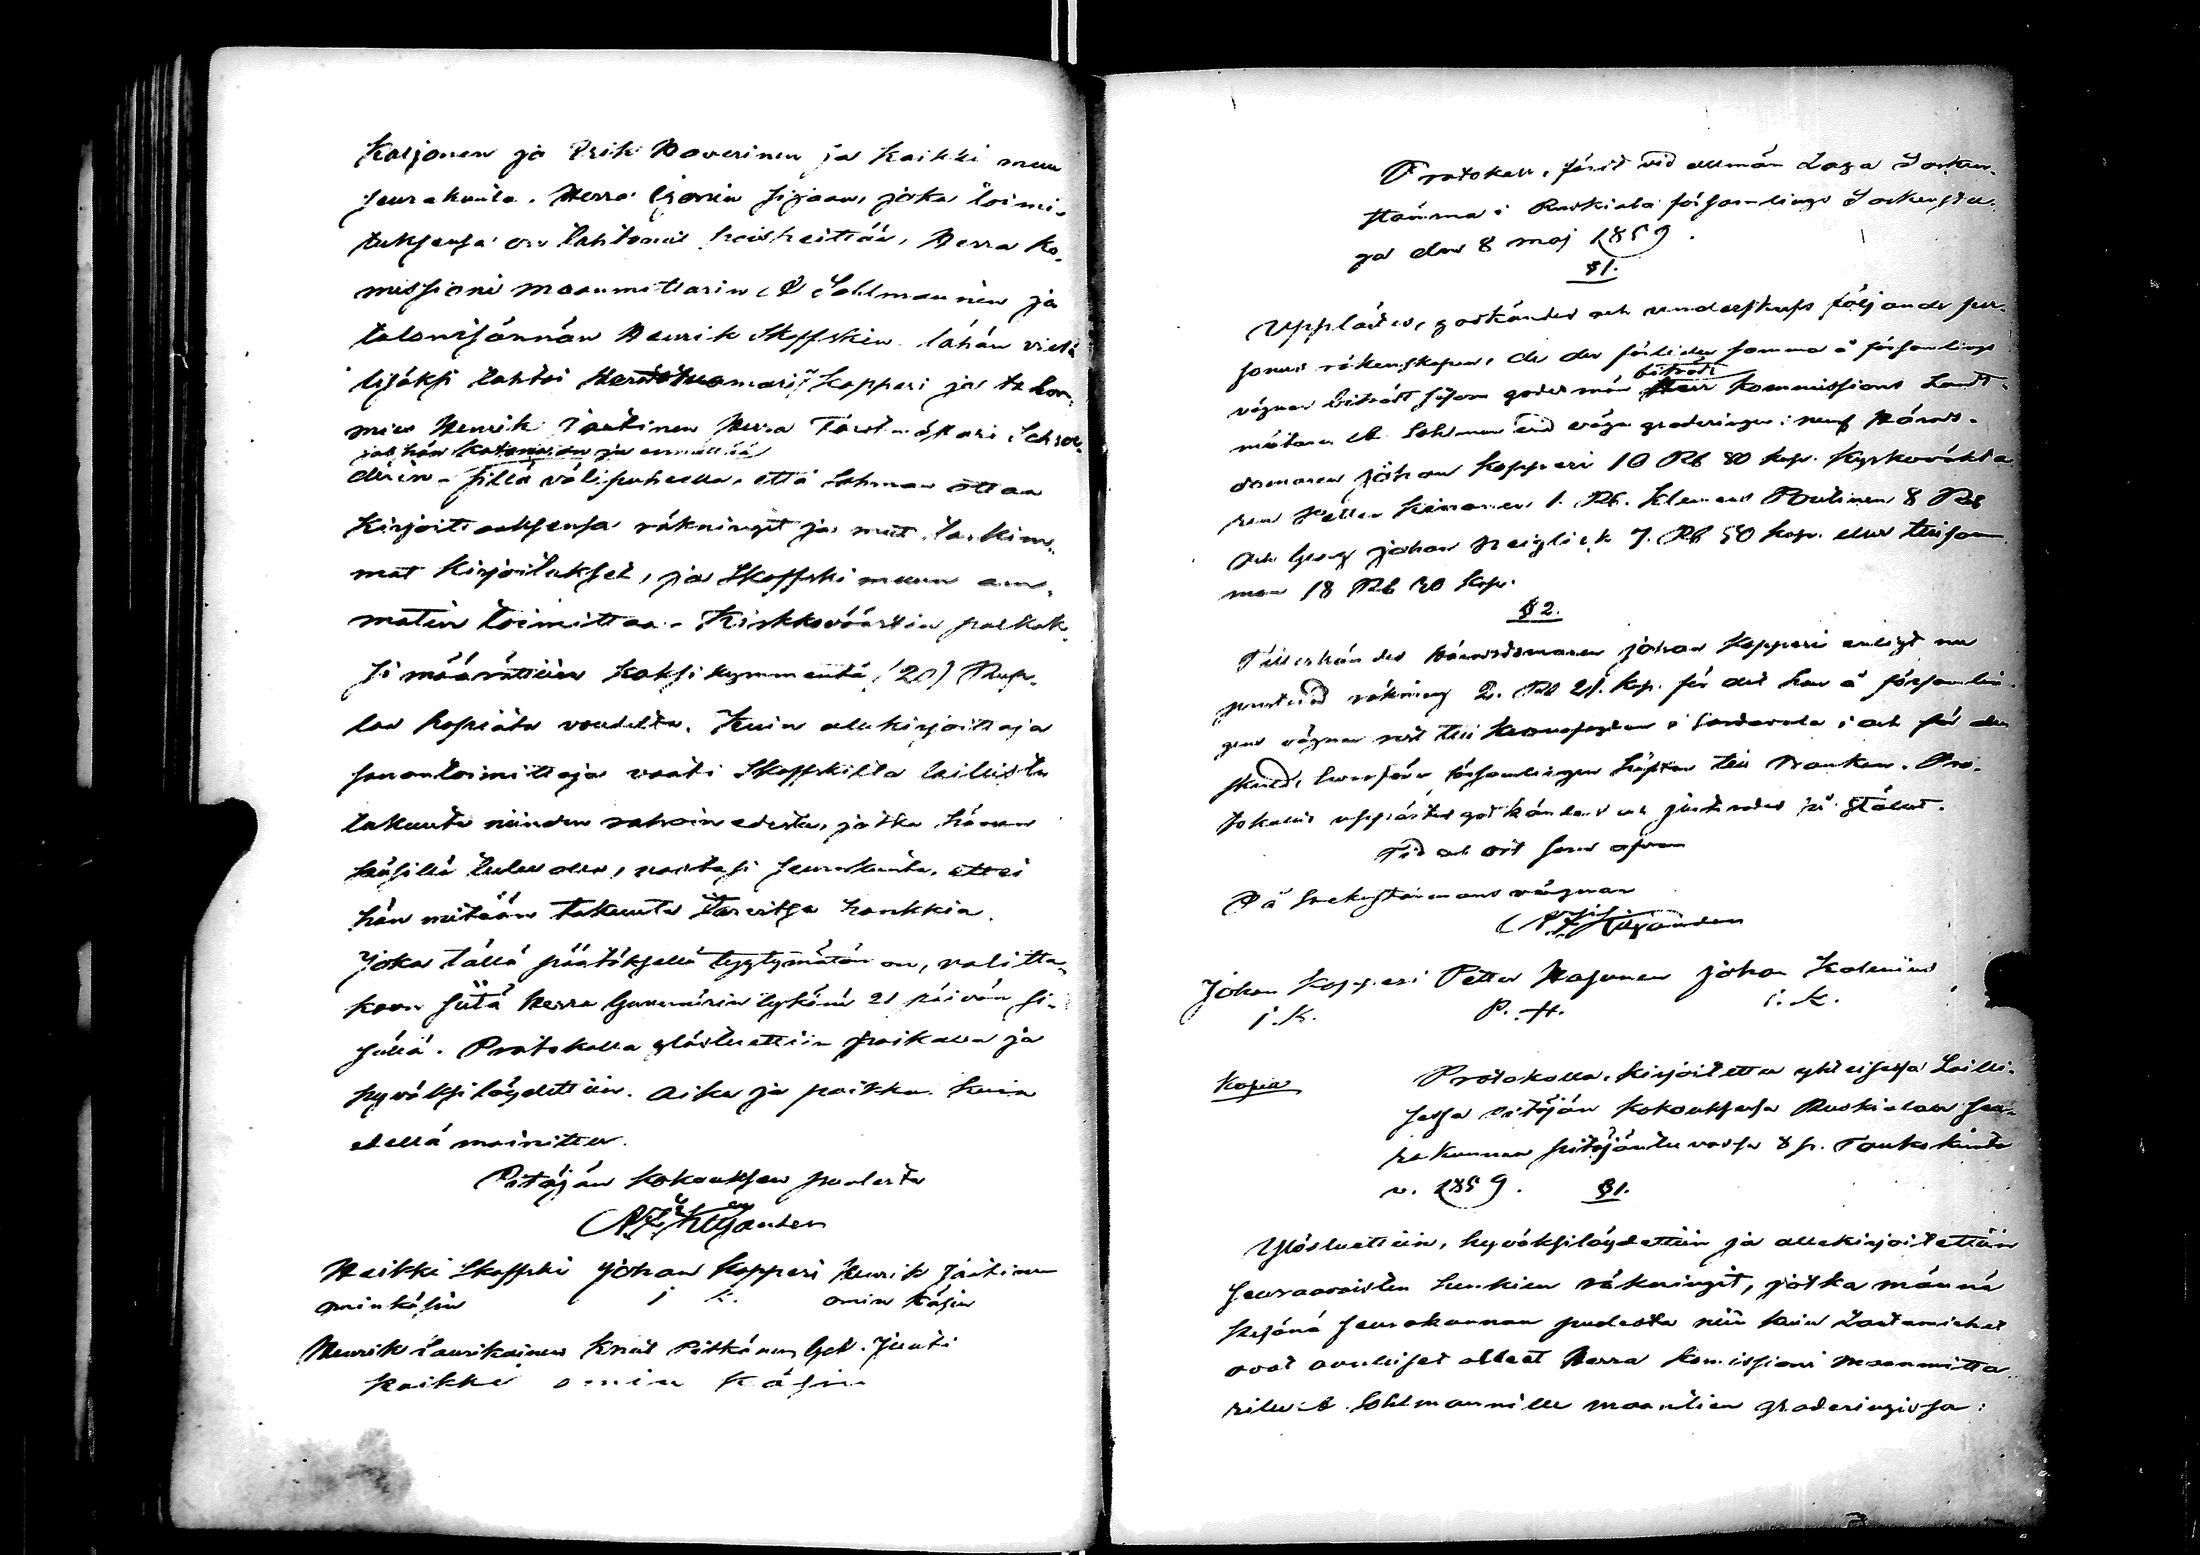 Karjonen ja Erik Haverinen ja kaikki muu
seurakunta. Herra Ignorin sijaan, joka toimi-
tuksensa on tahtonut poisheittää, Herra Ko-
missioni maanmittarin A Sohlmannin ja
talonisännän Henrik Skoffskin. tähän vielä
lisäksi tahtoi Herastuomari Kopperi ja talon-
mies Henrik Jäntinen Herra
jos hän katonaisen ja
sillä välipuheella, että Sohman ottaa
Kirjoittaaksensa räkningit ja muut tarkim-
mat kirjoitukset, ja Skoffski muun am-
matin toimittaa. Kirkkoväärtin palkak-
si määrättiin kaksikymmentä (20) Rup-
laa hopiata vuodelta. Kuin allekirjoittaja
sanantoimittaja vaati Skoffskilta laillista
takuuta niinden rahain edestä, jotka hänen
käsillä tulee olla, vastasi seurakunta, ettei
hän mitään takuuta tarvitse hankkia.
Joka tällä päätöksellä tyytymätön on, valitta-
koon siitä Herra Guvernörin tykönä 21 päivän si-
sällä. Protokolla ylösluettiin paikalla ja
hyväksilöydettiin. Aika ja paikka kuin
edellä mainittu.
Pitäjän kokouksen puolesta
Heikki Skoffski Johan Kopperi Henrik Jäntinen
omin käsin j k. omin käsin
Henrik Laurikainen Knut Pitkänen Gab. Juuti
kaikki omin käsin
Protokoll, fördt vid allmän Laga Socken-
stämma i Ruskiala församlings Sockenstu-
ga den 8 maj 1859.
§1.
Upplästes, godkändes och underskrefs följande per-
soners räkenskaper, de der förliden sommar å församlings
biträdt
vägnar biträdt såsom godemän Herr Kommissions Landt-
mätaren A. Sohlman vid vägagraderingen: neml Härads-
domaren Johan Kopperi 10 Rb 80 kop. Kyrkovärda
ren Petter Kinnunen 1. Rb. Klemens Poutinen 8 Rb
och Georg Johan Neiglick 7. Rb 50 kop. eller tillsam
man 18 Rb 30 kop.
§ 2.
Tillerkändes häradsdomaren Johan Kopperi enligt nu
justerad räkning 2. Rb 21. kop. för det han å församlin-
gens vägnar rest till kronofogden i Sordavala i och för den
skuld, hvarför församlingen häftar till Kronan. Pro-
tokollet upplästes godkändes och justerades på stället.
Tid och ort som ofvan
På Sockenstämmans vägnar
Johan Kopperi Petter Hasunen Johan Kolenius
j. k. P. H. i. k.
Kopia Protokolla, kirjoitettu yhteisessä Lailli-
sessa Pitäjän kokouksessa Ruskialan seu-
rakunnan pitäjäntuvassa 8 p. Toukokuuta
v. 1859. §1.
Ylösluettiin, hyväksilöydettiin ja allekirjoitettiin
seuraavaisten henkien räkningit, jotka männä
kesänä seurakunnan puolesta niin kuin Lautamiehet
ovat avulliset olleet Herra Komissioni maanmitta
rille A. Sohlmannille maantien graderingissa: